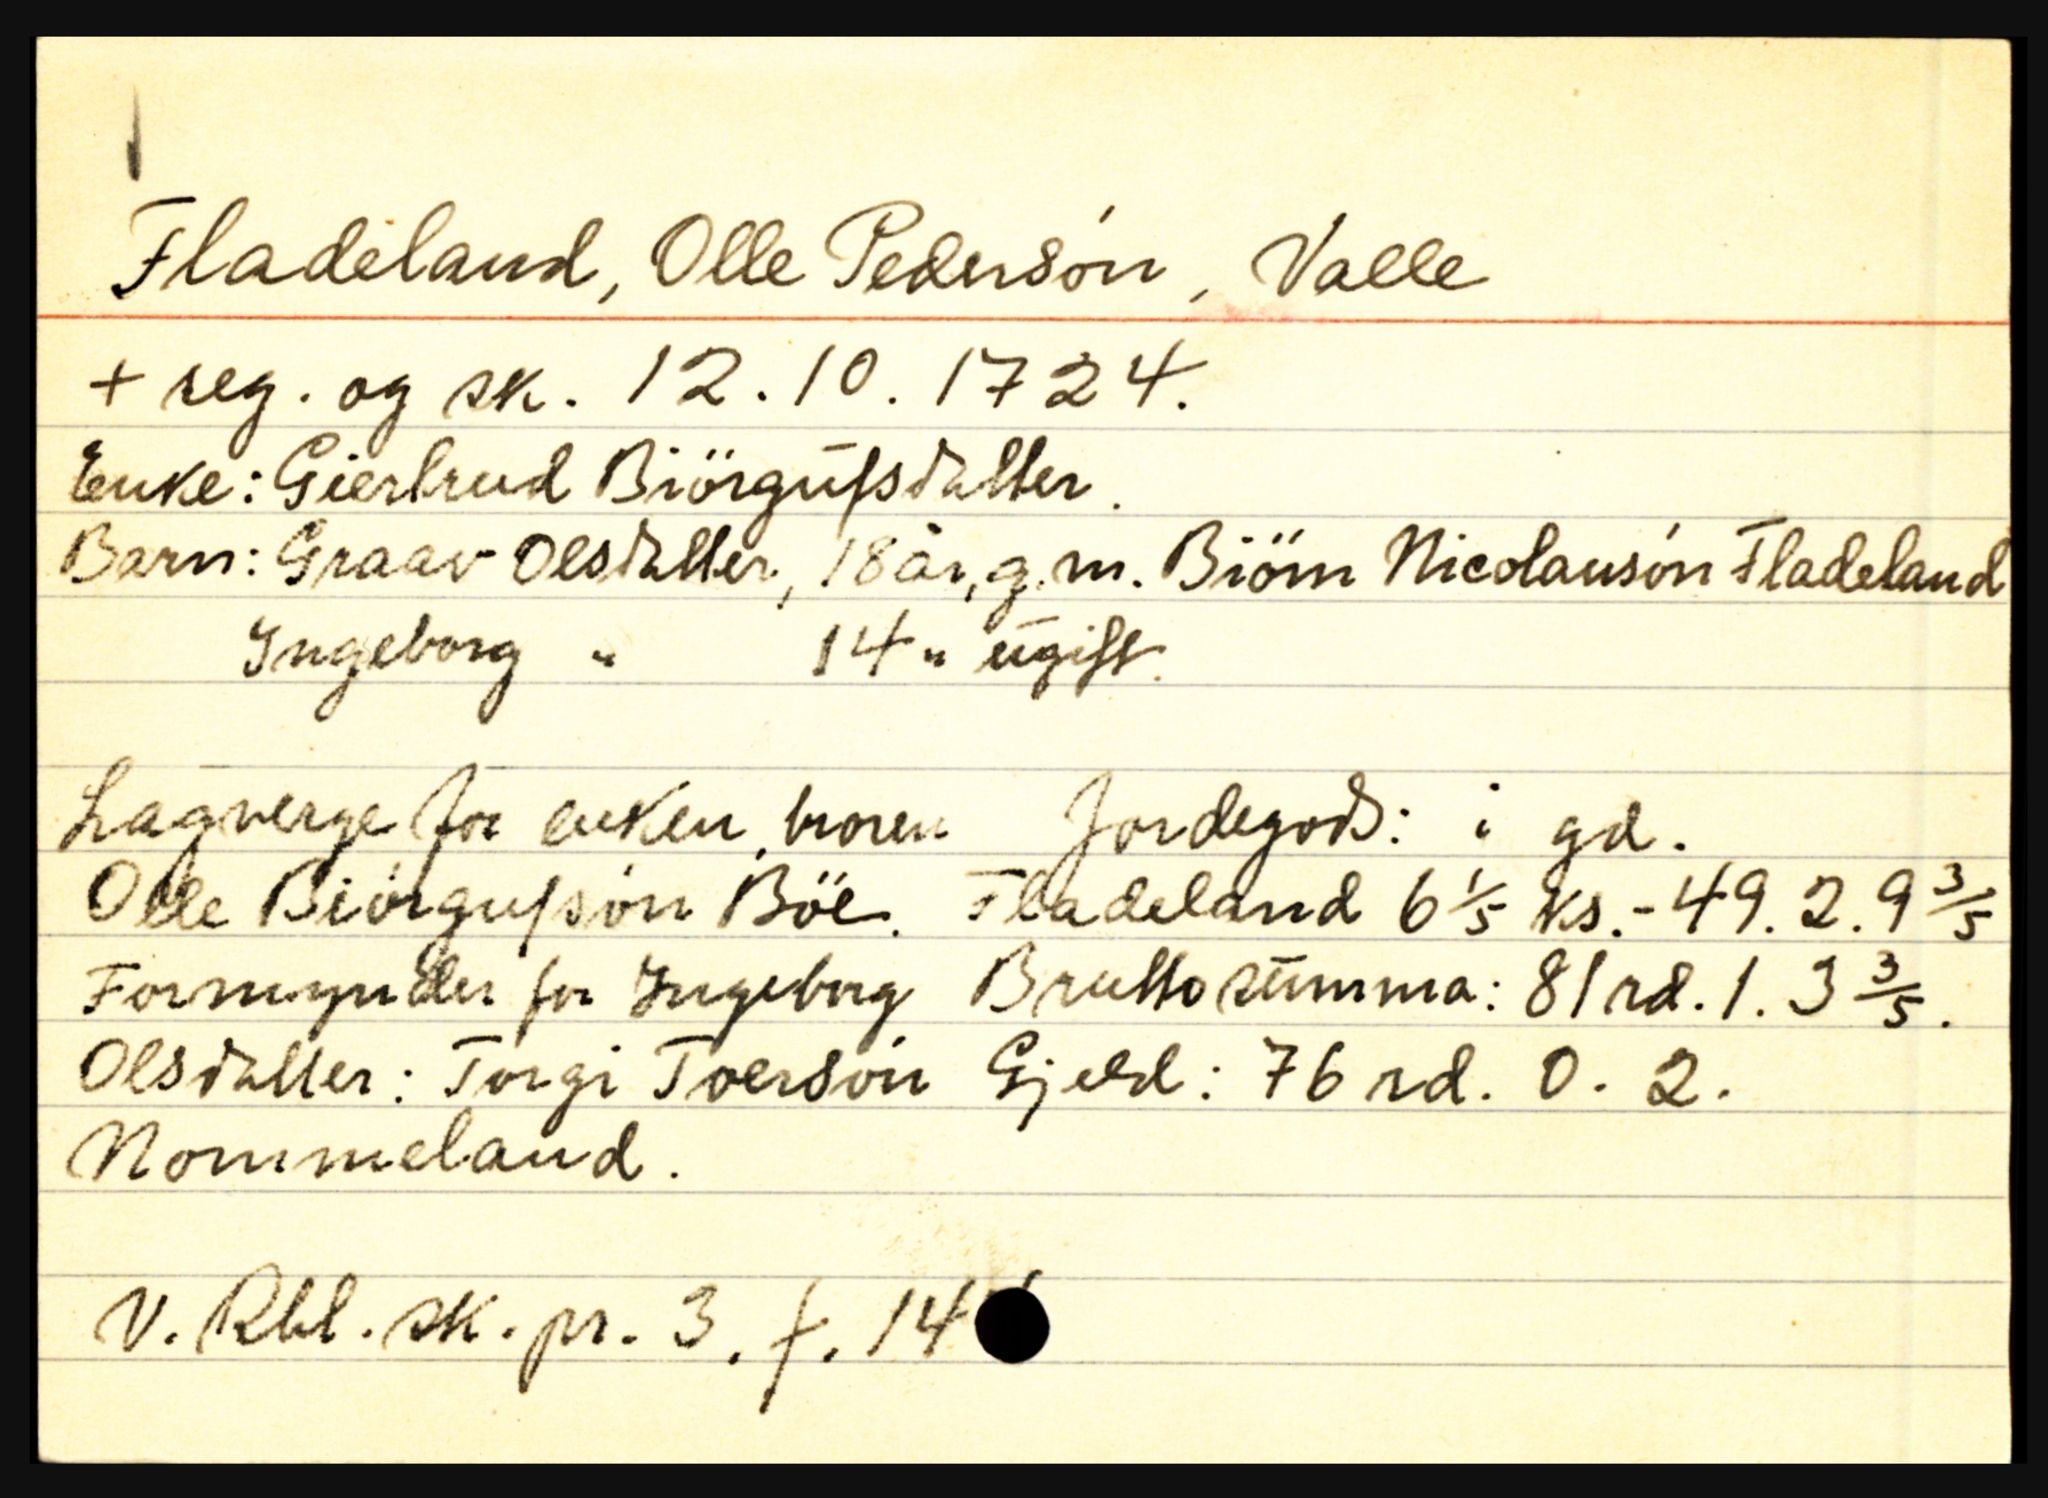 Fladeland, Olle Pedersón, Valle
+ reg. og sk. 12.10.1724.
Enke: Giertrud Biörgufsdatter.
Barn: Graav Olsdatter, 18 år, g.m. Biörn Nicolausón Fladeland
Ingeborg " 14 " ugift.
Lagverge for enken, broren
Olle Biörgufsón Böe.
Formynder for Ingeborg
Olsdatter: Torgi Toersón
Nommeland.
Jordegods: i gd.
Fladeland 6 1/5 ks. - 49.2.9 3/5
Brutto summa: 81 rd. 1. 3 3/5.
Gjeld: 76 rd. 0. 2.
V. Rbl. sk. pr. 3. f. 14